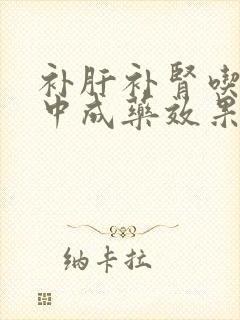 补肝补肾喫
中成藥效果
纳卡拉